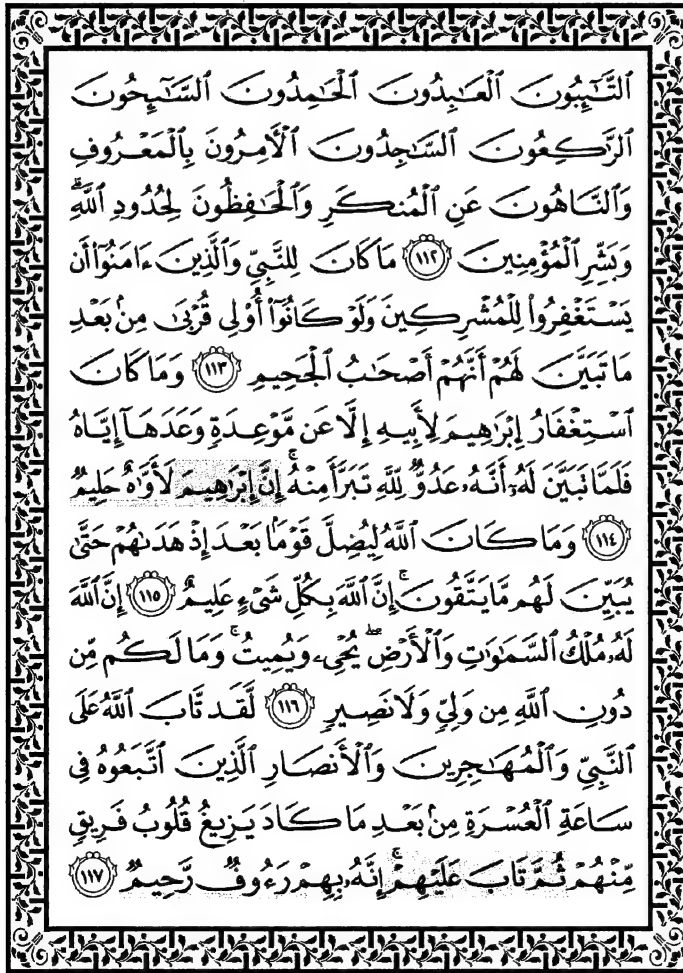 ٱلتَّـٰٓئِبُونَ ٱلْعَـٰبِدُونَ ٱلْحَـٰمِدُونَ ٱلسَّـٰٓئِحُونَ
ٱلرَّٰكِعُونَ ٱلسَّـٰجِدُونَ ٱلْـَٔامِرُونَ بِٱلْمَعْرُوفِ
وَٱلنَّاهُونَ عَنِ ٱلْمُنكَرِ وَٱلْحَـٰفِظُونَ لِحُدُودِ ٱللَّهِۗ
وَبَشِّرِ ٱلْمُؤْمِنِينَ ١١٢ مَا كَانَ لِلنَّبِىِّ وَٱلَّذِينَ ءَامَنُوٓا۟ أَن
يَسْتَغْفِرُوا۟ لِلْمُشْرِكِينَ وَلَوْ كَانُوٓا۟ أُو۟لِى قُرْبَىٰ مِنۢ بَعْدِ
مَا تَبَيَّنَ لَهُمْ أَنَّهُمْ أَصْحَـٰبُ ٱلْجَحِيمِ ١١٣ وَمَا كَانَ
ٱسْتِغْفَارُ إِبْرَٰهِيمَ لِأَبِيهِ إِلَّا عَن مَّوْعِدَةٍ وَعَدَهَآ إِيَّاهُ
فَلَمَّا تَبَيَّنَ لَهُۥٓ أَنَّهُۥ عَدُوٌّ لِّلَّهِ تَبَرَّأَ مِنْهُۚ إِنَّ إِبْرَٰهِيمَ لَأَوَّٰهٌ حَلِيمٌ
١١٤ وَمَا كَانَ ٱللَّهُ لِيُضِلَّ قَوْمًۢا بَعْدَ إِذْ هَدَىٰهُمْ حَتَّىٰ
يُبَيِّنَ لَهُم مَّا يَتَّقُونَۚ إِنَّ ٱللَّهَ بِكُلِّ شَىْءٍ عَلِيمٌ ١١٥ إِنَّ ٱللَّهَ
لَهُۥ مُلْكُ ٱلسَّمَـٰوَٰتِ وَٱلْأَرْضِۖ يُحْىِۦ وَيُمِيتُۚ وَمَا لَكُم مِّن
دُونِ ٱللَّهِ مِن وَلِىٍّ وَلَا نَصِيرٍ ١١٦ لَّقَد تَّابَ ٱللَّهُ عَلَى
ٱلنَّبِىِّ وَٱلْمُهَـٰجِرِينَ وَٱلْأَنصَارِ ٱلَّذِينَ ٱتَّبَعُوهُ فِى
سَاعَةِ ٱلْعُسْرَةِ مِنۢ بَعْدِ مَا كَادَ يَزِيغُ قُلُوبُ فَرِيقٍ
مِّنْهُمْ ثُمَّ تَابَ عَلَيْهِمْۚ إِنَّهُۥ بِهِمْ رَءُوفٌ رَّحِيمٌ ١١٧